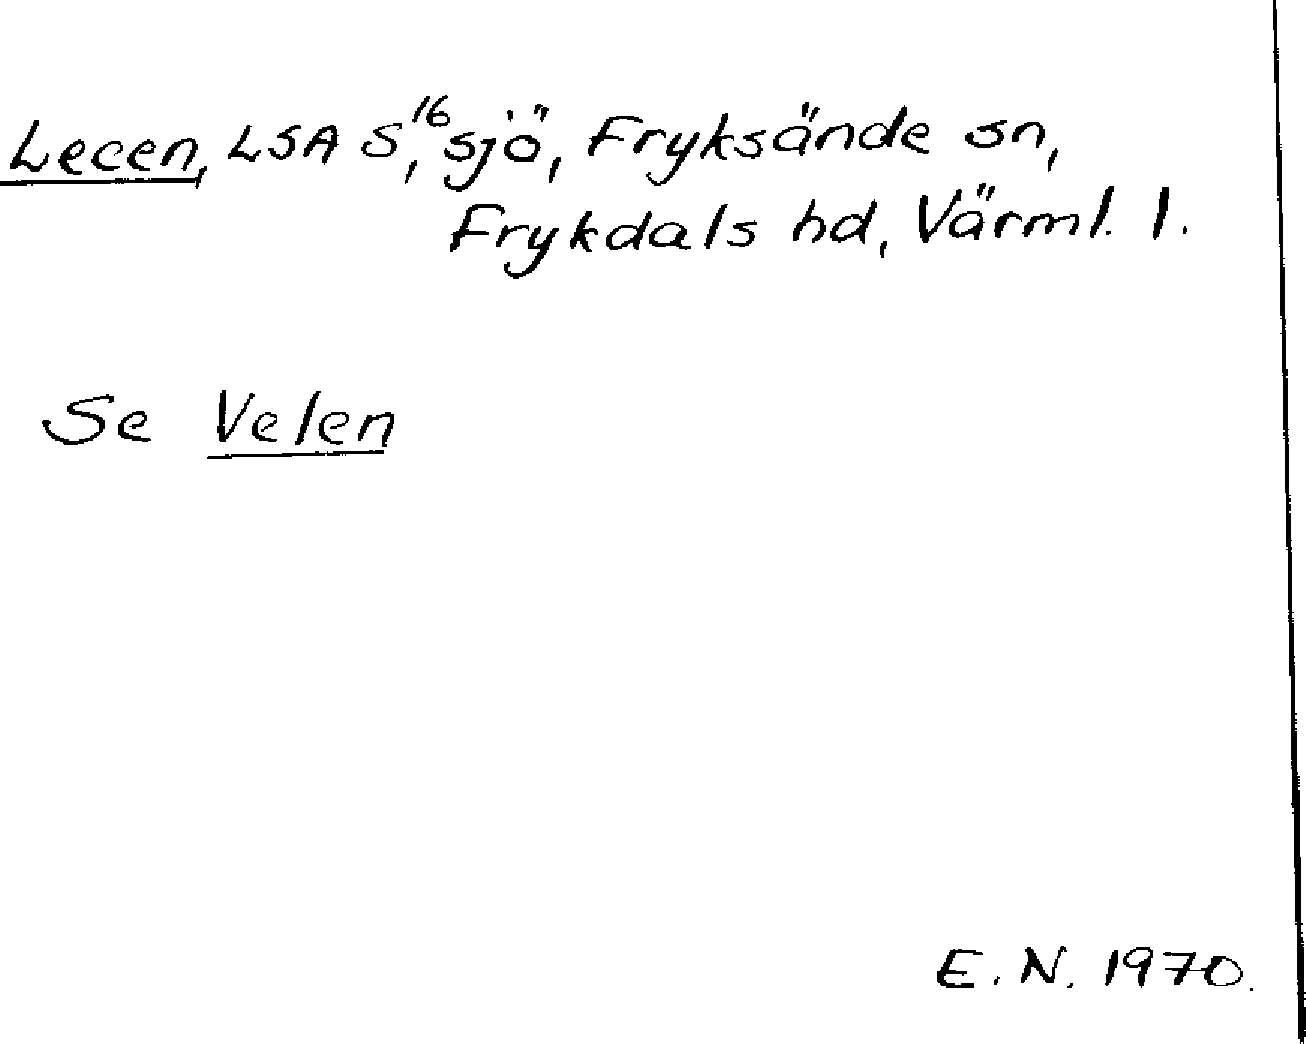 Lecen, LSA S,¹⁶ sjö, Fryksände sn,
Frykdals hd, Värml. l.
Se Velen
E. N. 1970.